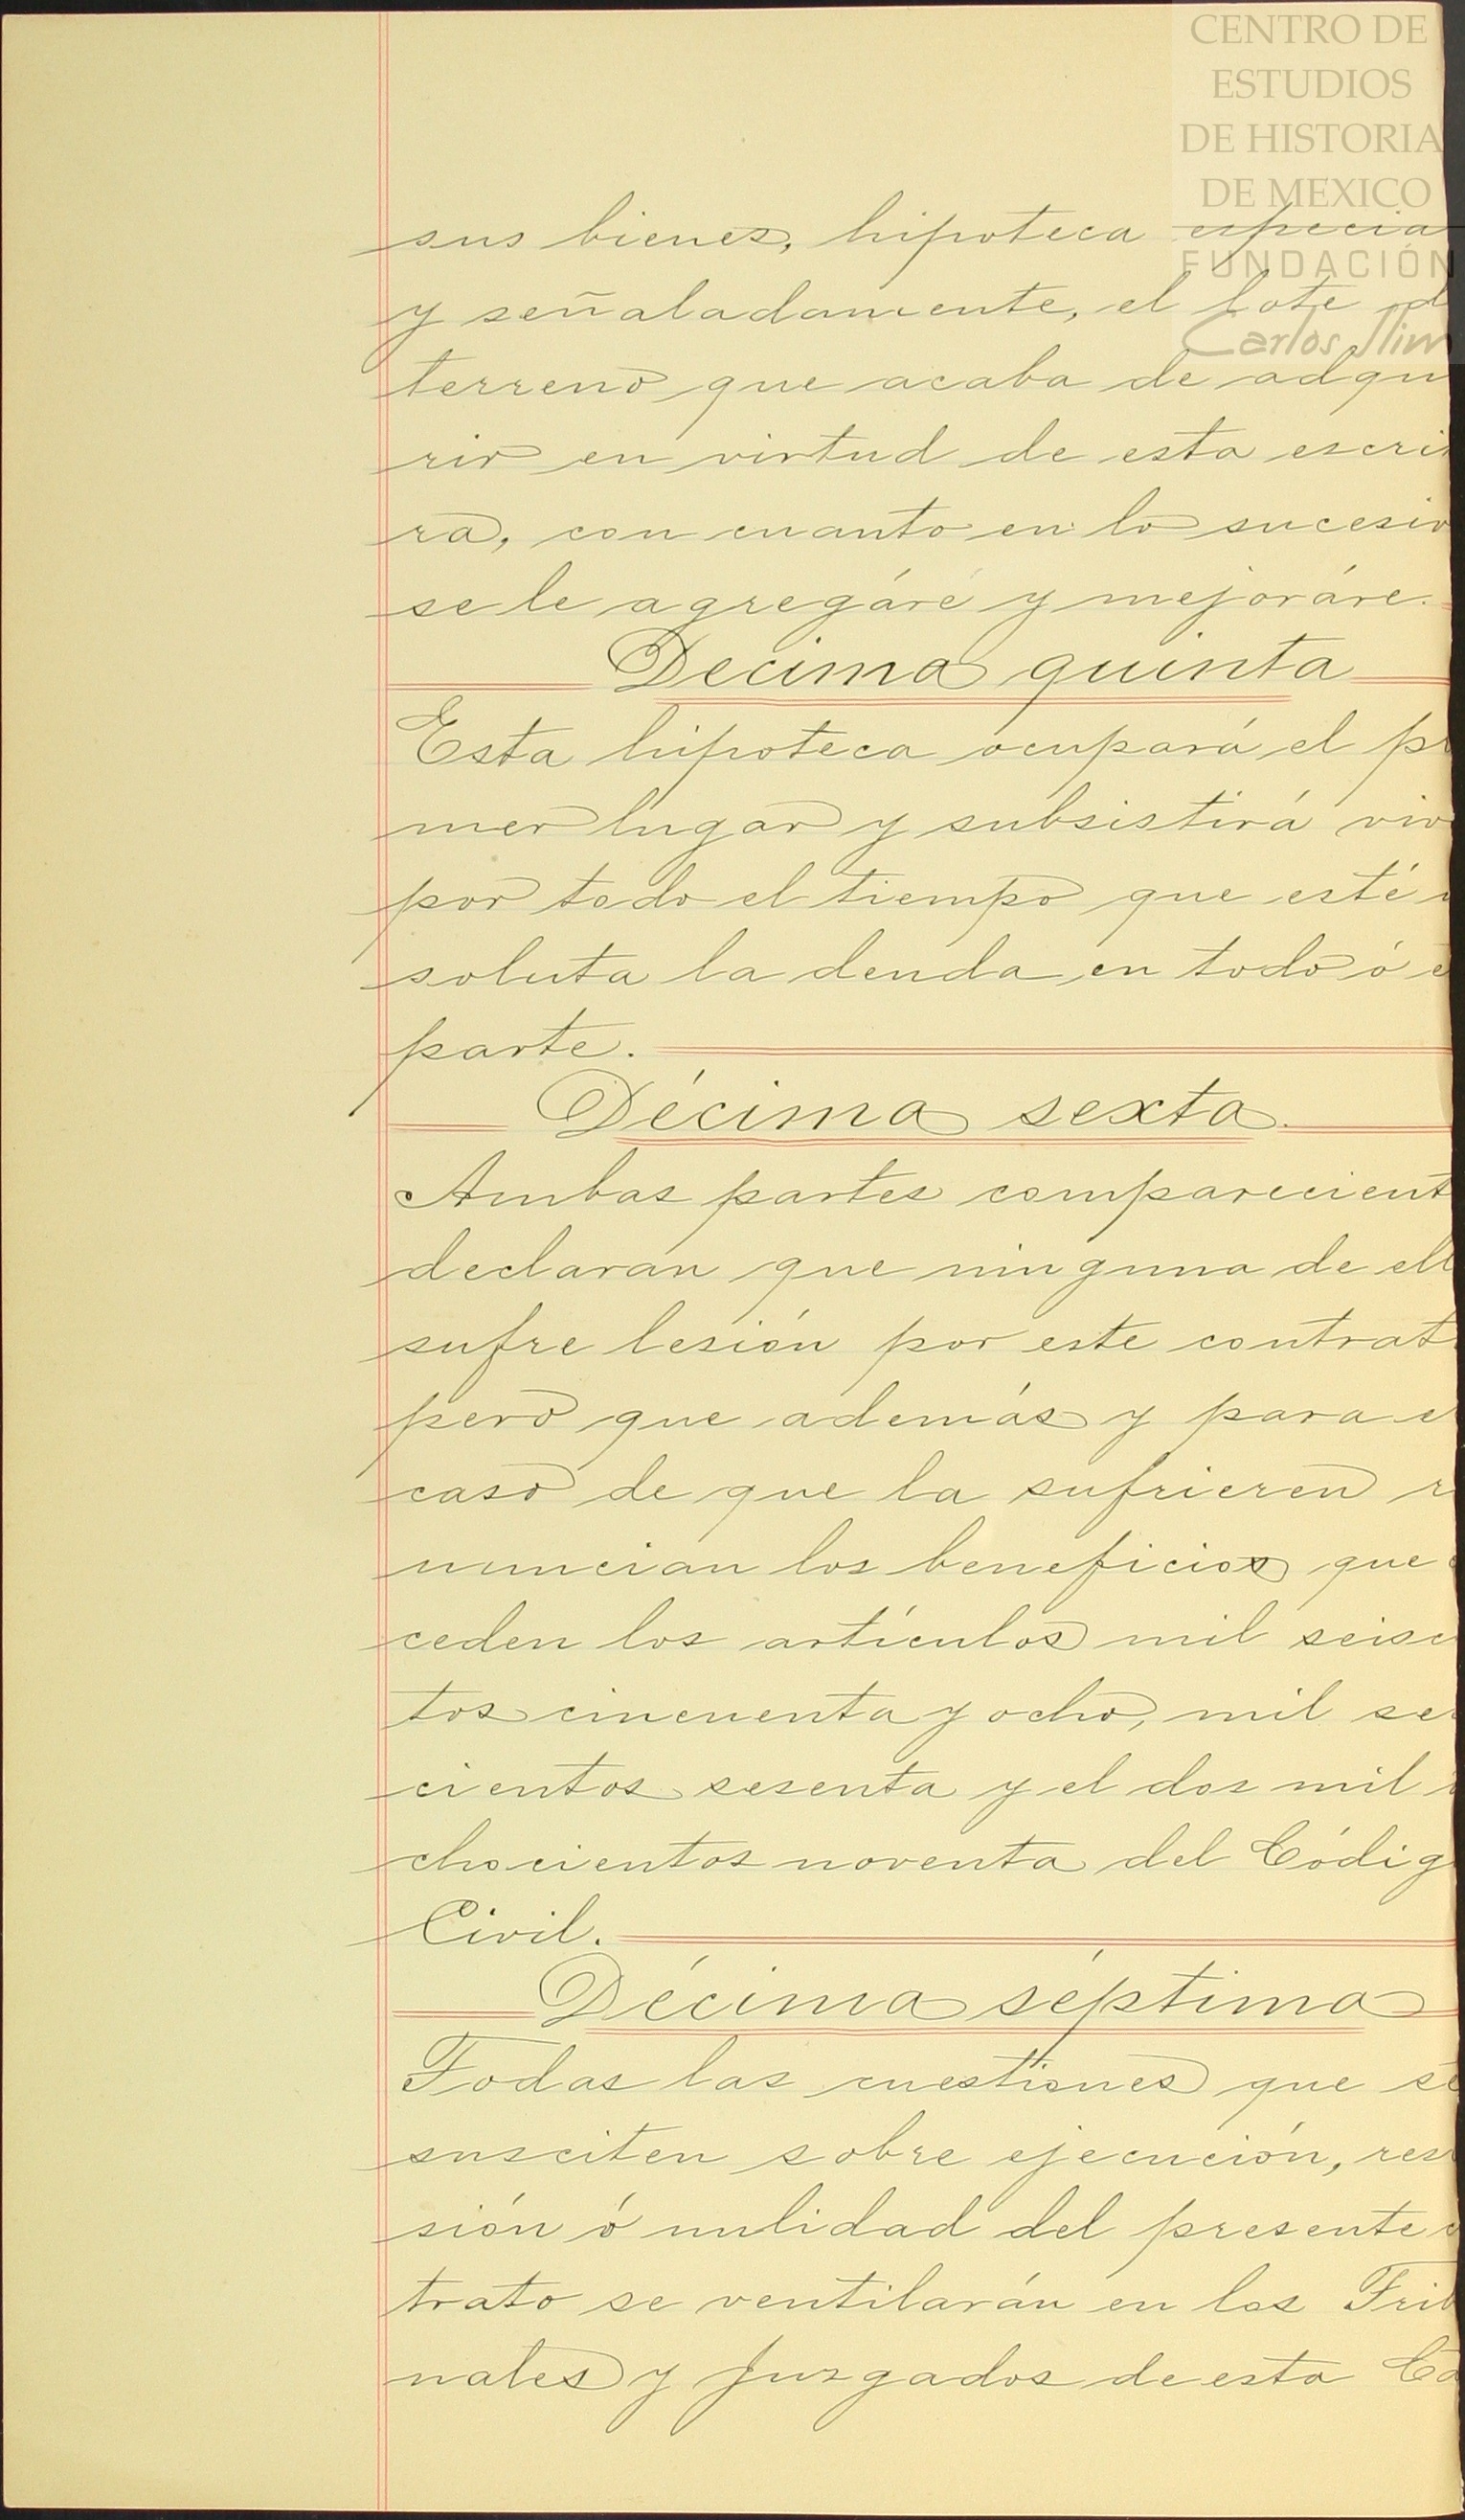 CENTRO DE
ESTUDIOS
DE HISTORIA
DE MEXICO
FUNDACIÓN
Carlos Slim
sus bienes, hipoteca especia
y señaladamente, el lote d
terreno que acaba de adqu
rir en virtud de esta escri
ra, con cuanto en lo sucesiv
se le agregáre y mejoráre.
Decima quinta
Esta hipoteca ocupará el pr
mer lugar y subsistirá viv
por todo el tiempo que esté
soluta la deuda en todo ó e
parte.
Décima sexta.
Ambas partes comparecient
declaran que ninguna de ell
sufre lesión por este contrat
pero que además y para e
caso de que la sufrieren r
nuncian los beneficios que
ceden los artículos mil seisc
tos cincuenta y ocho, mil se
cientos sesenta y el dos mil
chocientos noventa del Códig
Civil.
Décima séptima
Todas las cuestiones que se
susciten sobre ejecución, res
sión ó nulidad del presente c
trato se ventilarán en los Trib
nales y Juzgados de esta Ca